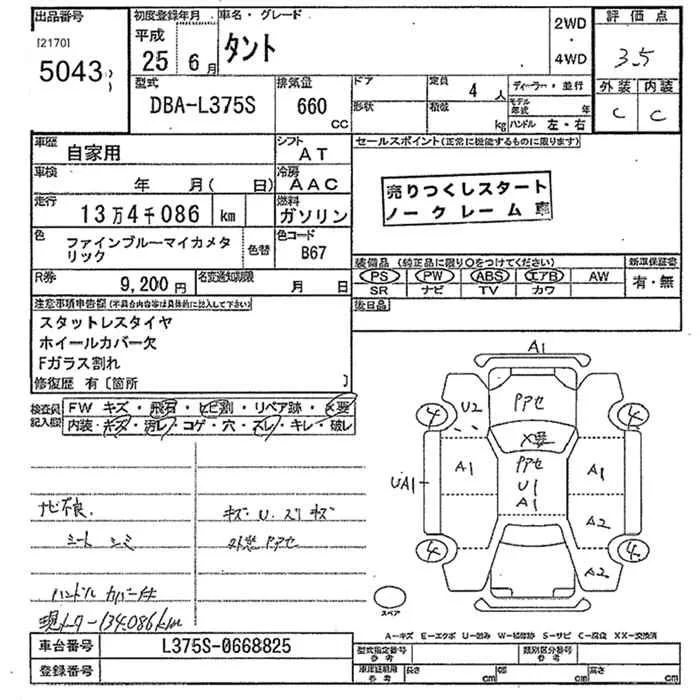 出品番号
[2170]
5043
初度登録年月
平成
25年 6月
車名・グレード
タント
2WD
・
4WD
評価点
3.5
外装 内装
C C
型式
DBA-L375S
排気量
660
CC
ドア
形状
定員
4人
積載
kg
ディーラー・並行
モデル年式 年
ハンドル 左・右
車歴
自家用
シフト
AT
車検
年 月( 日)
冷房
AAC
走行
13万4千086 km
燃料
ガソリン
色
ファインブルーマイカメタリック
色替
色コード
B67
R券
9,200円
名変通知期限
月 日
セールスポイント(正常に機能するものに限ります)
売りつくしスタート
ノークレーム車
装備品 (純正品に限り○をつけてください)
PS PW ABS エアB AW
SR ナビ TV カワ
新車保証書
有・無
後日品
注意事項申告欄(不具合内容等は具体的に記入して下さい)
スタットレスタイヤ
ホイールカバー欠
Fガラス割れ
修復歴 有〔箇所 〕
検査員記入欄
FW キズ・飛石・ヒビ割・リペア跡・X要
内装・キズ・汚レ・コゲ・穴・スレ・キレ・破レ
ナビ不良.
シート シミ
ハンドル カバー付
現メーター134.086km
キズ・U・スリキズ
外装 PアセA1
4
U2
Pアセ
4
X要
A1
Pアセ
U1
A1
A1
UA1
A2
4
4
A2
スペア
A-キズ E-エクボ U-凹み W-補修跡 S-サビ C-腐食 XX-交換済
車台番号
L375S-0668825
登録番号
型式指定番号
参考
類別区分番号
参考
車庫証明用
参考
長さ cm
幅 cm
高さ cm